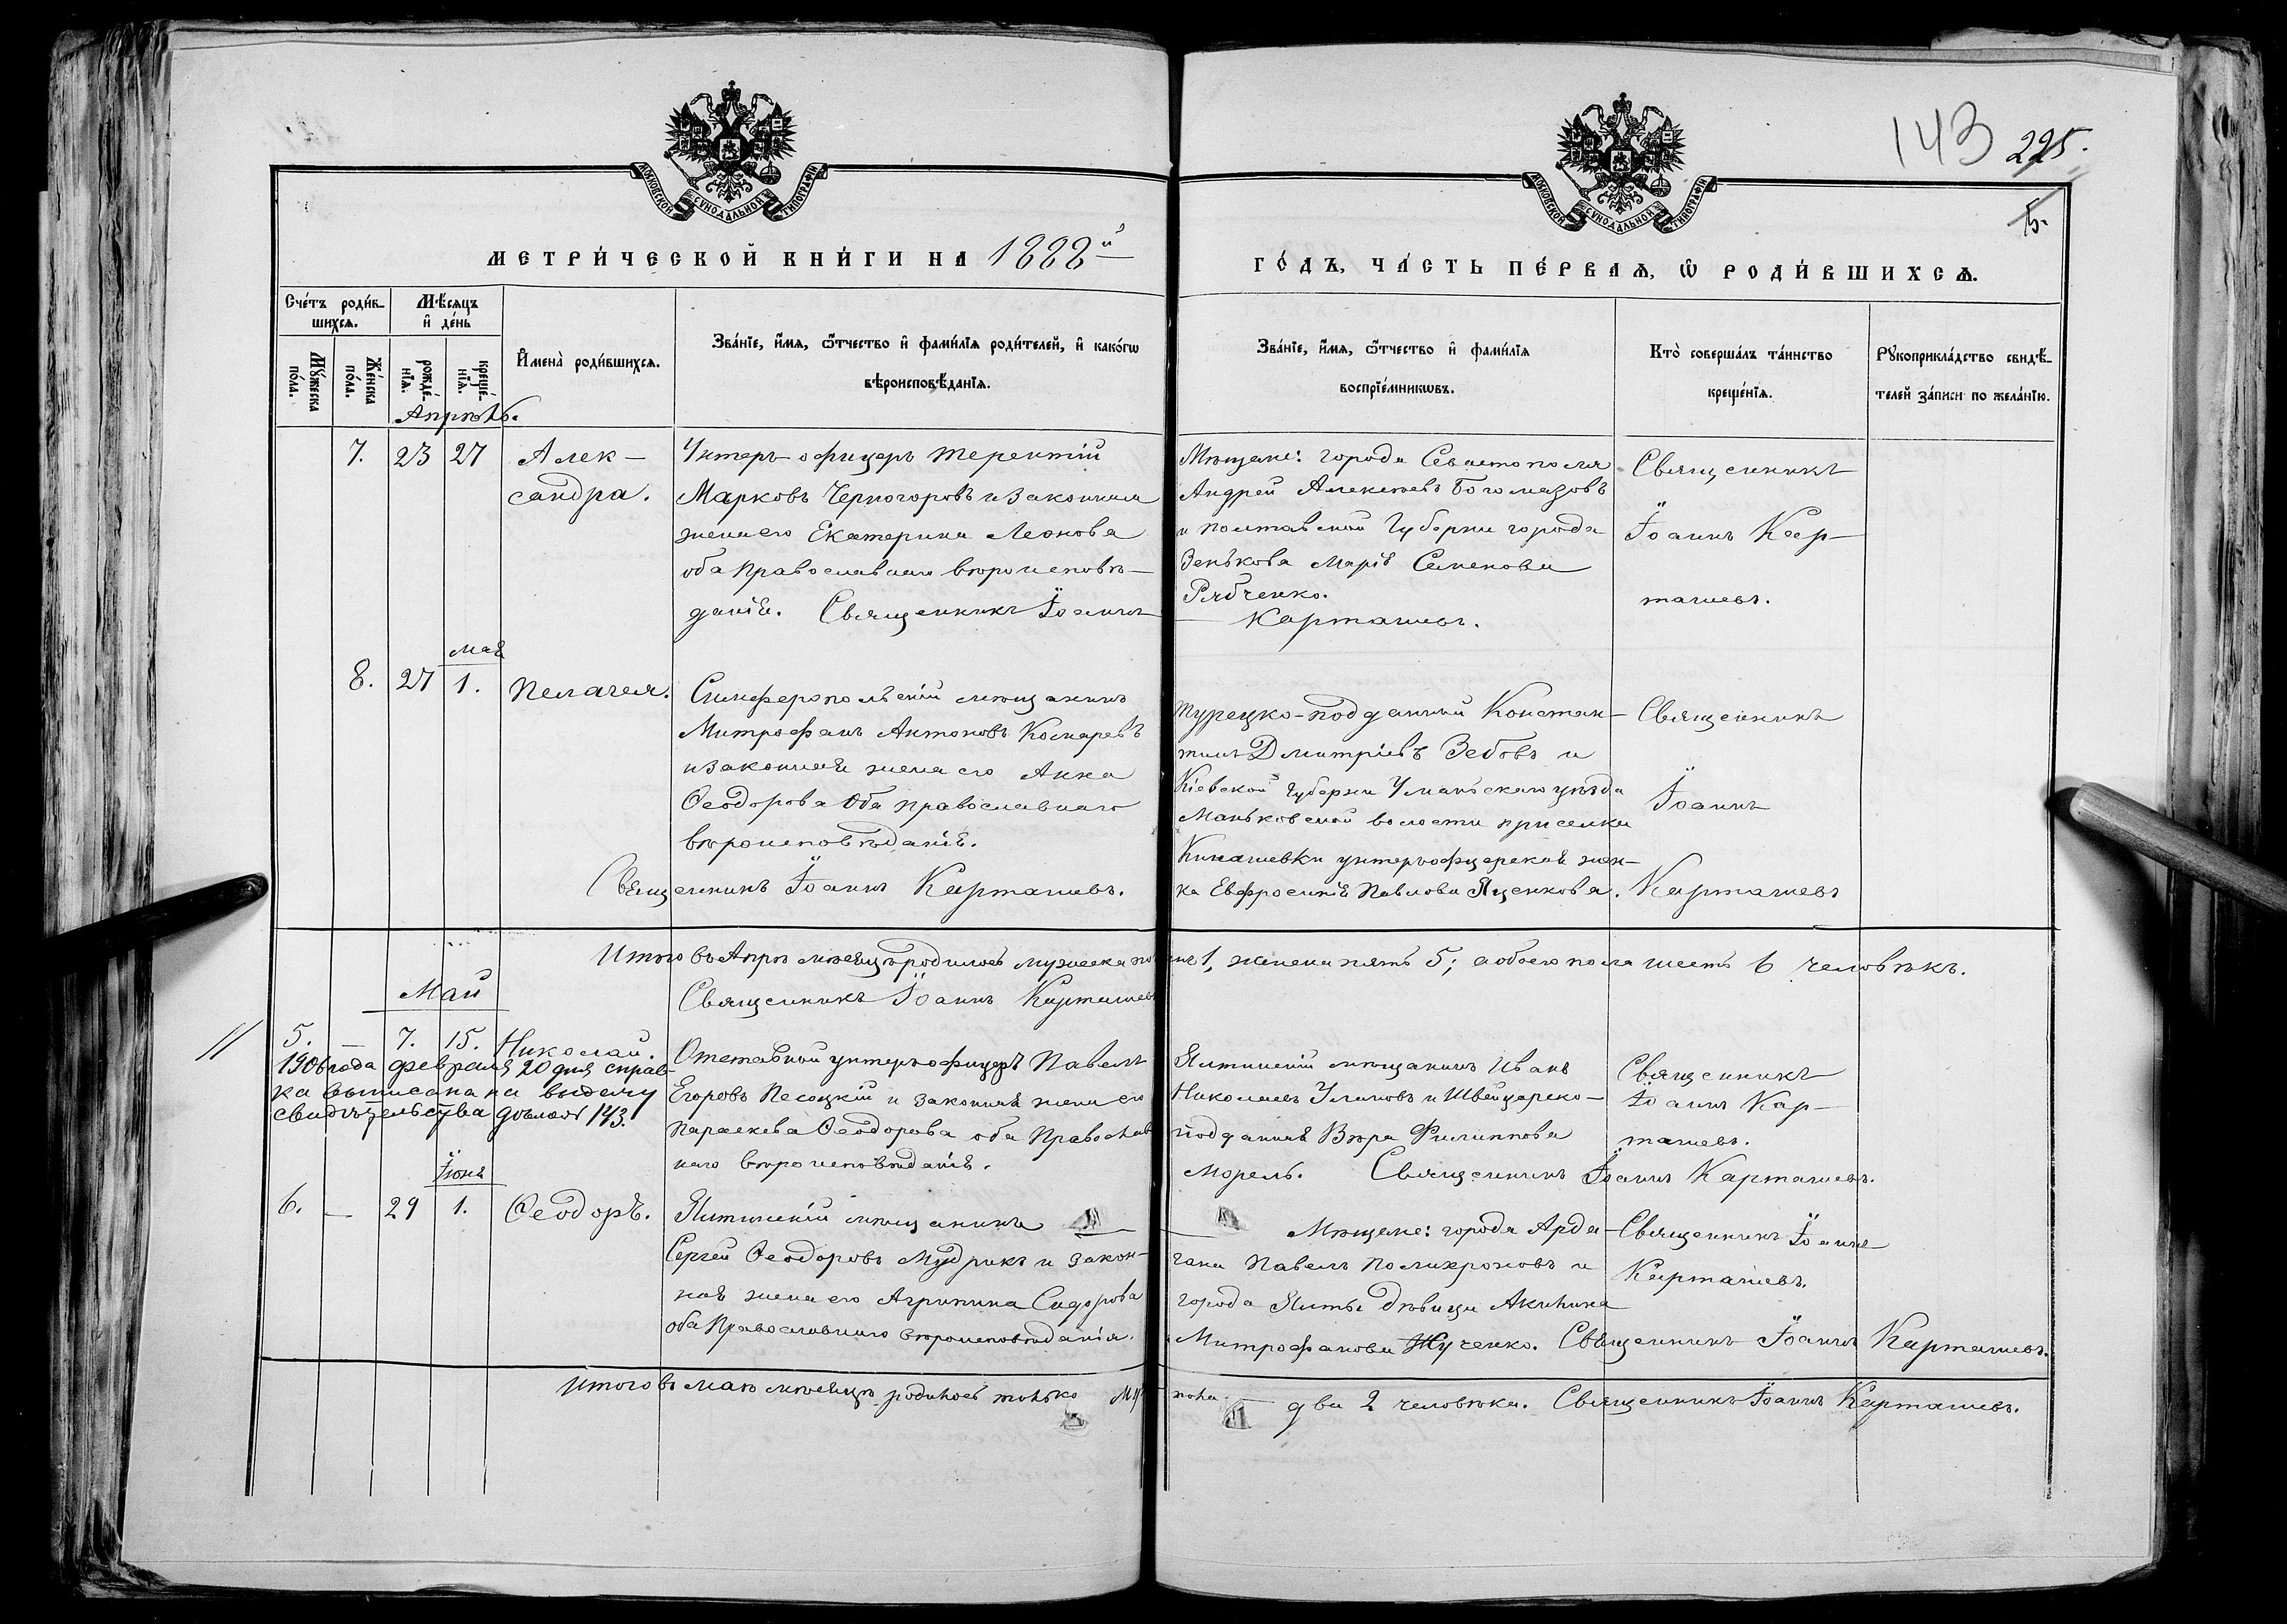 143 225.
5.
МОСКОВСКОЙ СѴНОДАЛЬНОЙ ТИПОГРАФІИ
МОСКОВСКОЙ СѴНОДАЛЬНОЙ ТИПОГРАФІИ
МЕТРИ́ЧЕСКОЙ КНИ́ГИ НА 1888й
ГО́ДЪ, ЧА́СТЬ ПЕ́РВАѦ, Ѡ҆ РОДИ́ВШИХСѦ.
Сче́тъ роди́в-
шихсѧ.
Мѣ́сѧцъ
и҆ де́нь
Мꙋ́жеска
по́ла.
Же́нска
по́ла.
рожде́-
нїѧ.
креще́-
нїѧ.
И҆мена̀ роди́вшихсѧ.
Зва́нїе, и҆́мѧ, ѻ҆́тчество и҆ фами́лїѧ роди́телей, и҆ како́гѡ
вѣроисповѣ́данїѧ.
Зва́нїе, и҆́мѧ, ѻ҆́тчество и҆ фами́лїѧ
воспрїе́мникѡвъ.
Кто̀ соверша́лъ та́инство
креще́нїѧ.
Рꙋкоприкла́дство свидѣ́-
телей за́писи по жела́нїю.
Апрѣль.
7. 23 27 Алек-
сандра.
Унтеръ-офицеръ Терентій
Марковъ Черногоровъ и законная
жена его Екатерина Леонова
оба Православнаго вѣроисповѣ-
данія. Священникъ Іоаннъ
Карташевъ.
Мѣщане: города Севастополя
Андрей Алексѣевъ Богомазовъ
и Полтавской Губерніи города
Зенькова Марія Семенова
Рябченко.
Священникъ
Іоаннъ Кар-
ташевъ.
мая
8. 27 1. Пелагея.
Симферопольскій мѣщанинъ
Митрофанъ Антоновъ Косаревъ
и законная жена его Анна
Ѳеодорова Оба православнаго
вѣроисповѣданія.
Священникъ Іоаннъ Карташевъ.
Турецко-подданный Констан-
тинъ Дмитріевъ Зебовъ и
Кіевской Губерніи Уманьскаго уѣзда
Маньковской волости приселка
Кинашевки унтеръофицерская жен-
ка Евфросинія Павлова Яценкова.
Священникъ
Іоаннъ
Карташевъ
Итого въ Апрѣ мѣсяцѣ родилось мужеска пола 1, женска пять 5; а обоего пола шесть 6 человѣкъ.
Священникъ Іоаннъ Карташевъ
Май
5. — 7. 15. Николай.
1906 года февраля 20 дня справ-
ка выписана на выдачу
свидѣтельства 143.
Отставной унтеръофицеръ Павелъ
Егоровъ Песоцкій и законная жена его
Параскева Ѳеодорова оба Православ
наго вѣроисповѣданія.
Ялтинскій мѣщанинъ Иванъ
Николаевъ Улановъ и Швейцарско-
подданная Вѣра Филиппова
Морель. Священникъ Іоаннъ Карташевъ.
Священникъ
Іоаннъ Кар-
ташевъ.
Іюня
6. — 29 1. Ѳеодоръ.
Ялтинскій мѣщанинъ
Сергей Ѳеодоровъ Мудрикъ и закон-
ная жена его Агрипина Сидорова
оба Православнаго вѣроисповѣданія.
Мѣщане: города Арда-
гана Павелъ Полихроновъ и
города Ялты дѣвица Акилина
Митрофанова Жученко. Священникъ Іоаннъ Карташевъ.
Священникъ Іоаннъ
Карташевъ.
Итого въ маѣ мѣсяцѣ родилось только му пола два 2 человѣка. Священникъ Іоаннъ Карташевъ.